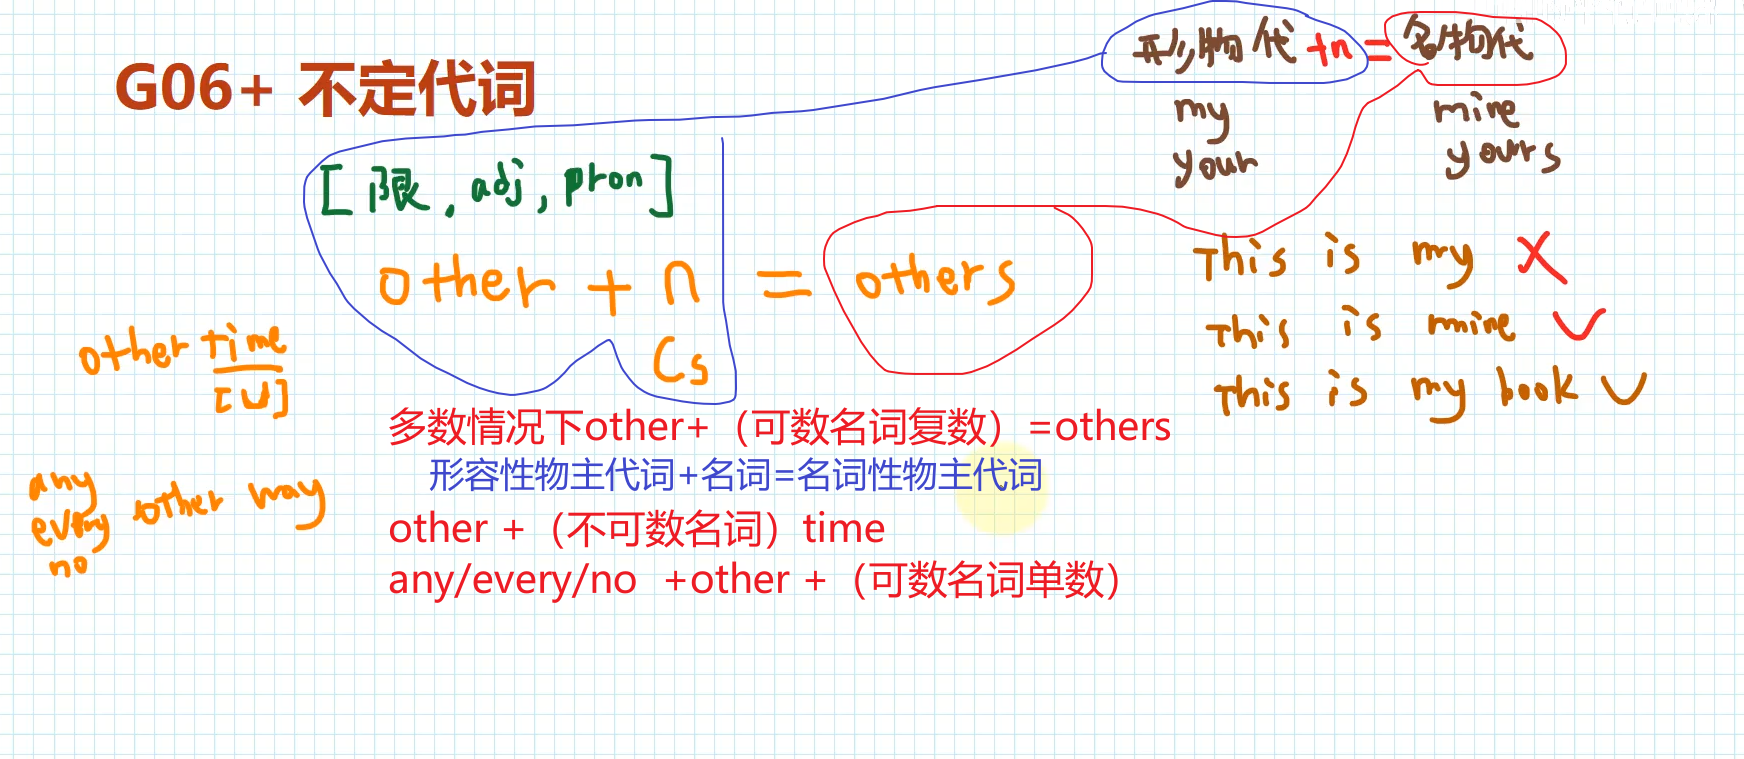 G06+ 不定代词
形物代+n=名物代
my mine
your yours
[限, adj, pron]
other + n = others
Cs
This is my X
This is mine ✓
This is my book ✓
other time
[U]
any
every other way
no
多数情况下other+（可数名词复数）=others
形容性物主代词+名词=名词性物主代词
other +（不可数名词）time
any/every/no +other +（可数名词单数）